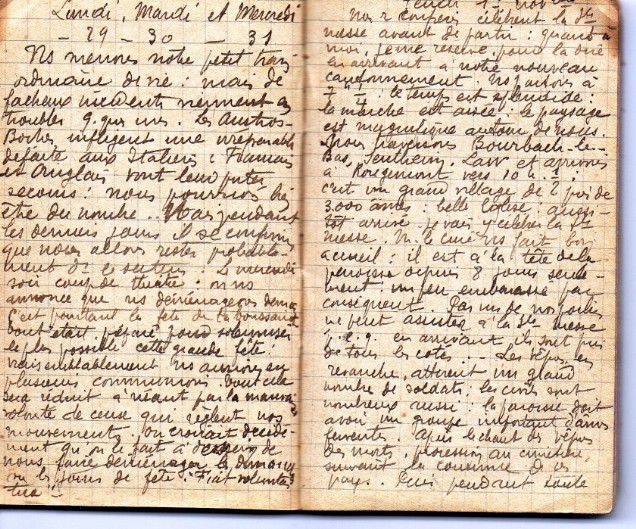 Lundi, Mardi et Mercredi
- 29 - 30 - 31
Ns menons notre petit train
ordinaire de vie : mais de
facheux incidents viennent
troubler q. ques uns. Les Austros-
Boches infligent une irréparable
défaite aux Italiens ; Français
et Anglais vont leur porter
secours : nous pourrions bien
être du nombre. Or cependant
les derniers jours il se confirme
que nous allons rester probable-
ment ds ce secteur. Le mercredi
soir coup de théâtre : on ns
annonce que ns déménageons demain
C'est pourtant la fête de la Toussaint
tout était préparé pour solenniser
le plus possible cette grande fête :
vraisemblablement ns aurions eu
plusieurs communions. Tout cela
sera réduit à néant par la mauvaise
volonté de ceux qui règlent nos
mouvements. On croirait décidé-
ment qu'on le fait à dessein de
nous faire déménager le dimanche
ou les jours de fête. Fiat voluntas
tua !!
Jeudi 1er nov
Nos 2 confrères célèbrent la Ste
messe avant de partir : quant à
moi, je me réserve pour la dire
en arrivant à notre nouveau
cantonnement. Ns partons à
7 h : le temps est splendide :
la marche est aisée : le paysage
est magnifique autour de nous.
Nous traversons Bourbach-le-
Bas, Sentheim, Law et arrivons
à Rougemont vers 10 h. :
c'est un grand village de 2 près de
3.000 âmes : belle église : aussi-
tôt arrivé, je vais célébrer la Ste
messe. M. le curé ns fait bon
accueil : il est à la tête de la
paroisse depuis 8 jours seule-
ment : un peu embarassé par
conséquent. Pas un de nos poilus
ne peut assister à la Ste messe
p. c. q. en arrivant ils sont pris
de tous les côtés. Les vêpres, en
revanche, attirent un grand
nombre de soldats ; les civils sont
nombreux aussi : la paroisse doit
avoir un groupe important d'âmes
ferventes. Après le chant des vêpres
des morts, procession au cimetière,
suivant la coutume de ces
pays. Puis pendant toute